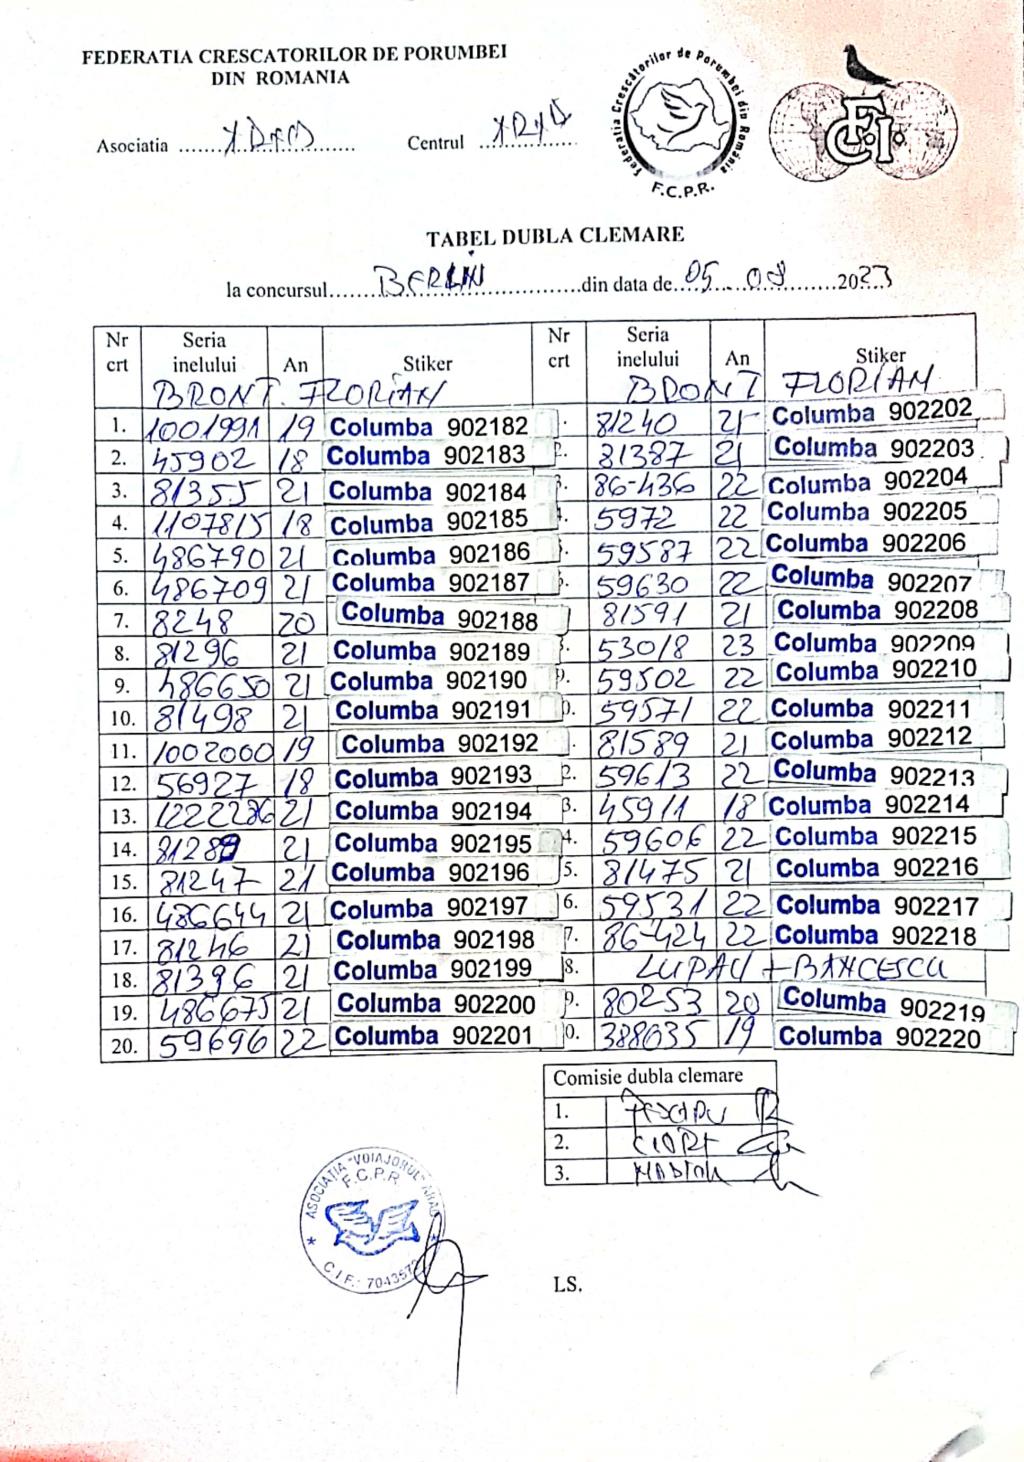 FEDERATIA CRESCATORILOR DE PORUMBEI
DIN ROMANIA
Asociatia ARAD Centrul ARAD
Federatia Crescătorilor de Porumbei din România
F.C.P.R.
FCI
TABEL DUBLA CLEMARE
la concursul BERLIN din data de 05.08 2023
Nr crt Seria inelului An Stiker Nr crt Seria inelului An Stiker
BRONT FLORIAN BRONT FLORIAN
1. 1001991 19 Columba 902182 81240 21 Columba 902202
2. 45902 18 Columba 902183 2. 81387 21 Columba 902203
3. 81355 21 Columba 902184 3. 86436 22 Columba 902204
4. 1107815 18 Columba 902185 5972 22 Columba 902205
5. 486790 21 Columba 902186 59587 22 Columba 902206
6. 486709 21 Columba 902187 59630 22 Columba 902207
7. 8248 20 Columba 902188 81591 21 Columba 902208
8. 81296 21 Columba 902189 53018 23 Columba 902209
9. 486650 21 Columba 902190 9. 59502 22 Columba 902210
10. 81498 21 Columba 902191 0. 59571 22 Columba 902211
11. 1002000 19 Columba 902192 81589 21 Columba 902212
12. 56927 18 Columba 902193 2. 59613 22 Columba 902213
13. 1222286 21 Columba 902194 3. 45911 18 Columba 902214
14. 21 Columba 902195 4. 59606 22 Columba 902215
15. 81247 21 Columba 902196 5. 81475 21 Columba 902216
16. 486644 21 Columba 902197 6. 59531 22 Columba 902217
17. 81246 21 Columba 902198 7. 86424 22 Columba 902218
18. 81396 21 Columba 902199 8. LUPAU + BANCESCU
19. 486675 21 Columba 902200 9. 80253 20 Columba 902219
20. 59696 22 Columba 902201 0. 388035 19 Columba 902220
Comisie dubla clemare
1.
2.
3.
ASOCIATIA "VOIAJORUL" ARAD
F.C.P.R.
LS.